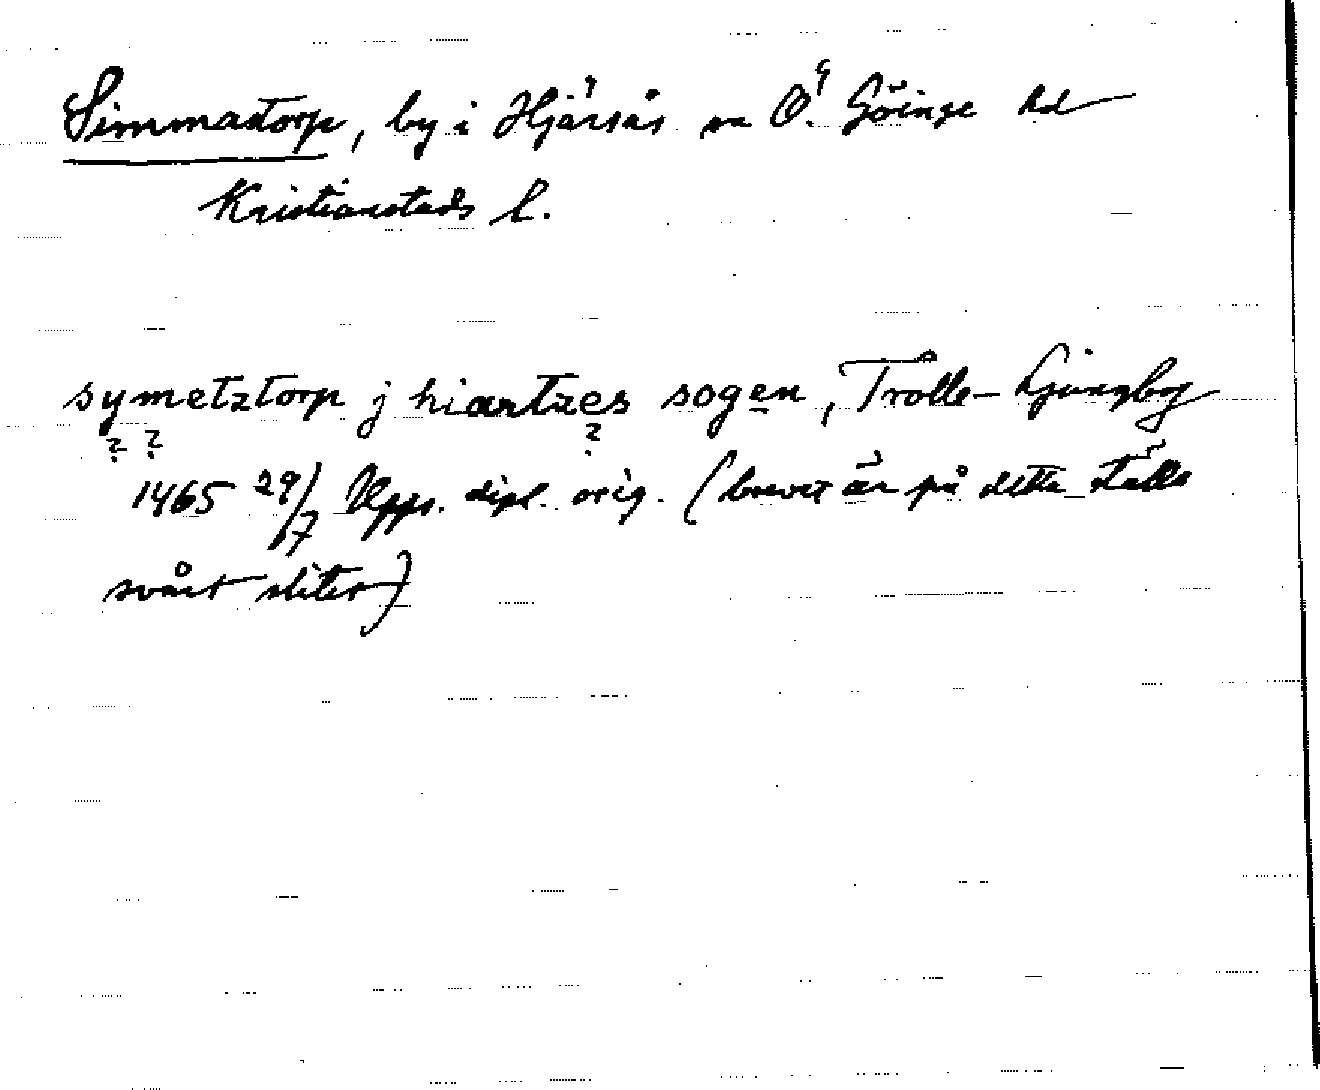 Simmastorp, by i Hjärsås sn Ö. Göinge hd
Kristianstads l.
symetztorp j hiartzes sogen, Trolle-Ljungby
? ? ?
1465 29/7 Upps. dipl. orig. (brevet är på detta ställe
svårt slitet)